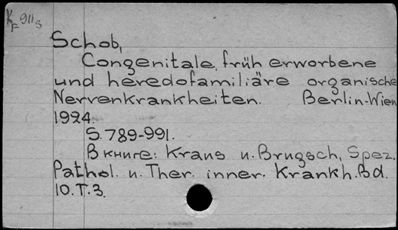 K F 911s
Schob,
Congenitale, früh erworbene
und heredofamiliäre organische
Nervenkrankheiten. Berlin-Wien
1924.
S. 789-991.
В книге: Kraus u. Brugsch, Spez.
Pathol. u. Ther. inner. Krankh. Bd.
10. T. 3.